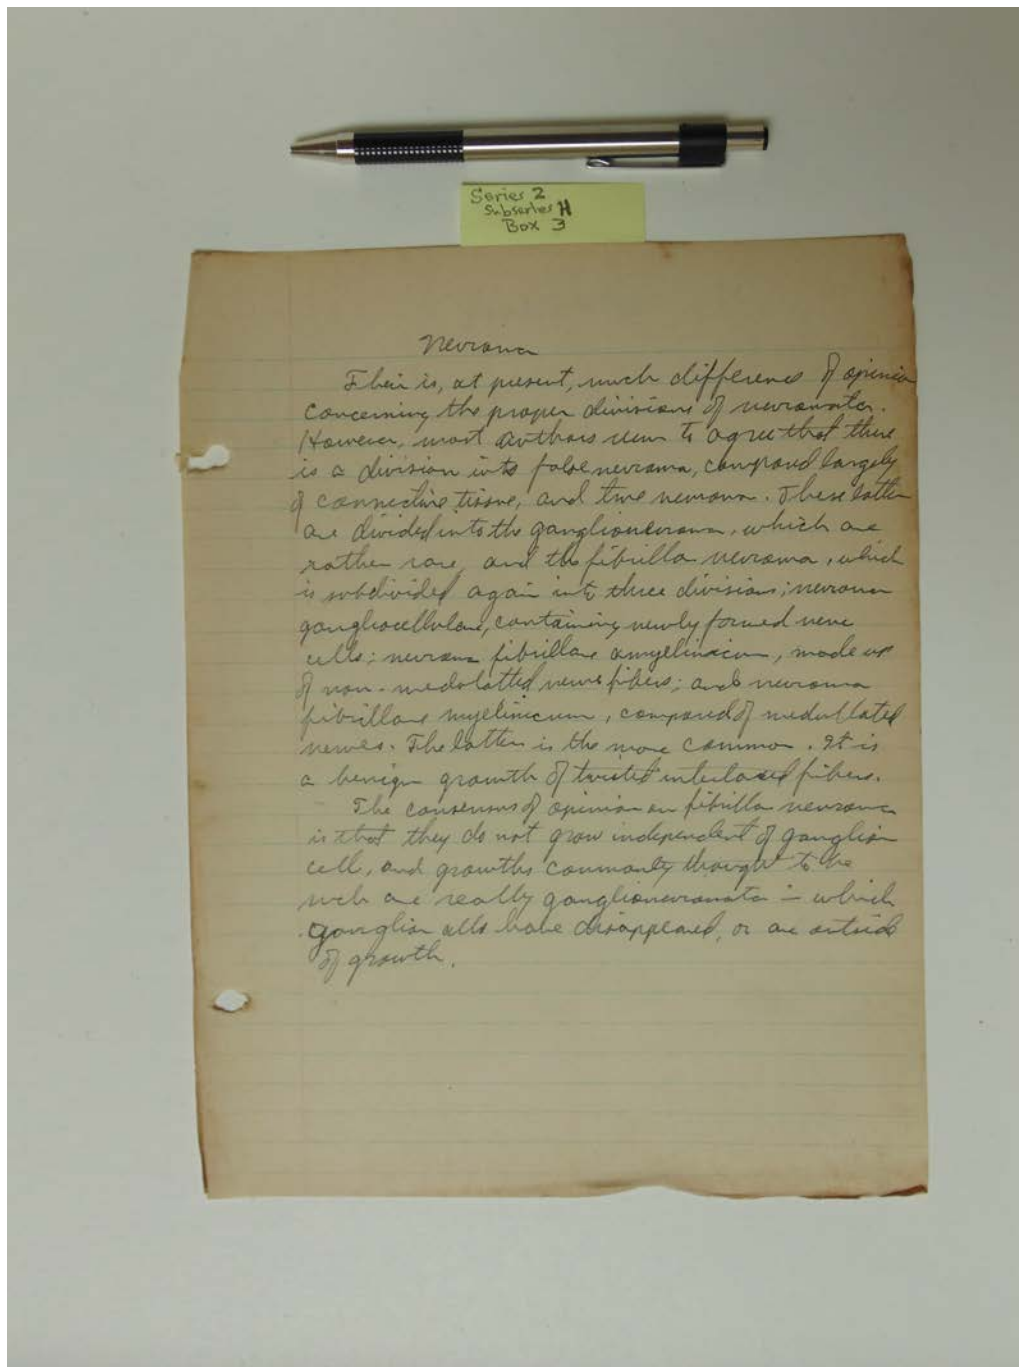 Series 2
Subseries H
Box 3
Neuroma
Their is, at present, much difference of opinion
concerning the proper divisions of neuromata.
However, most authors seem to agree that there
is a division into false neuroma, composed largely
of connective tissue, and true neuroma. These latter
are divided into the ganglioneuroma, which are
rather rare, and the fibrilla neuroma, which
is subdivided again into three divisions; neuroma
gangliocellulare, containing newly formed nerve
cells; neuroma fibrillare amyelinicum, made up
of non-medulatted nerve fibers; and neuroma
fibrillare myelinicum, composed of medullated
nerves. The latter is the more common. It is
a benign growth of twisted interlaced fibers.
The consensus of opinion on fibrilla neuroma
is that they do not grow independent of ganglion
cell, and growths commonly thought to be
such are really ganglioneuromata in which
ganglion cells have disappeared, or are outside
of growth.